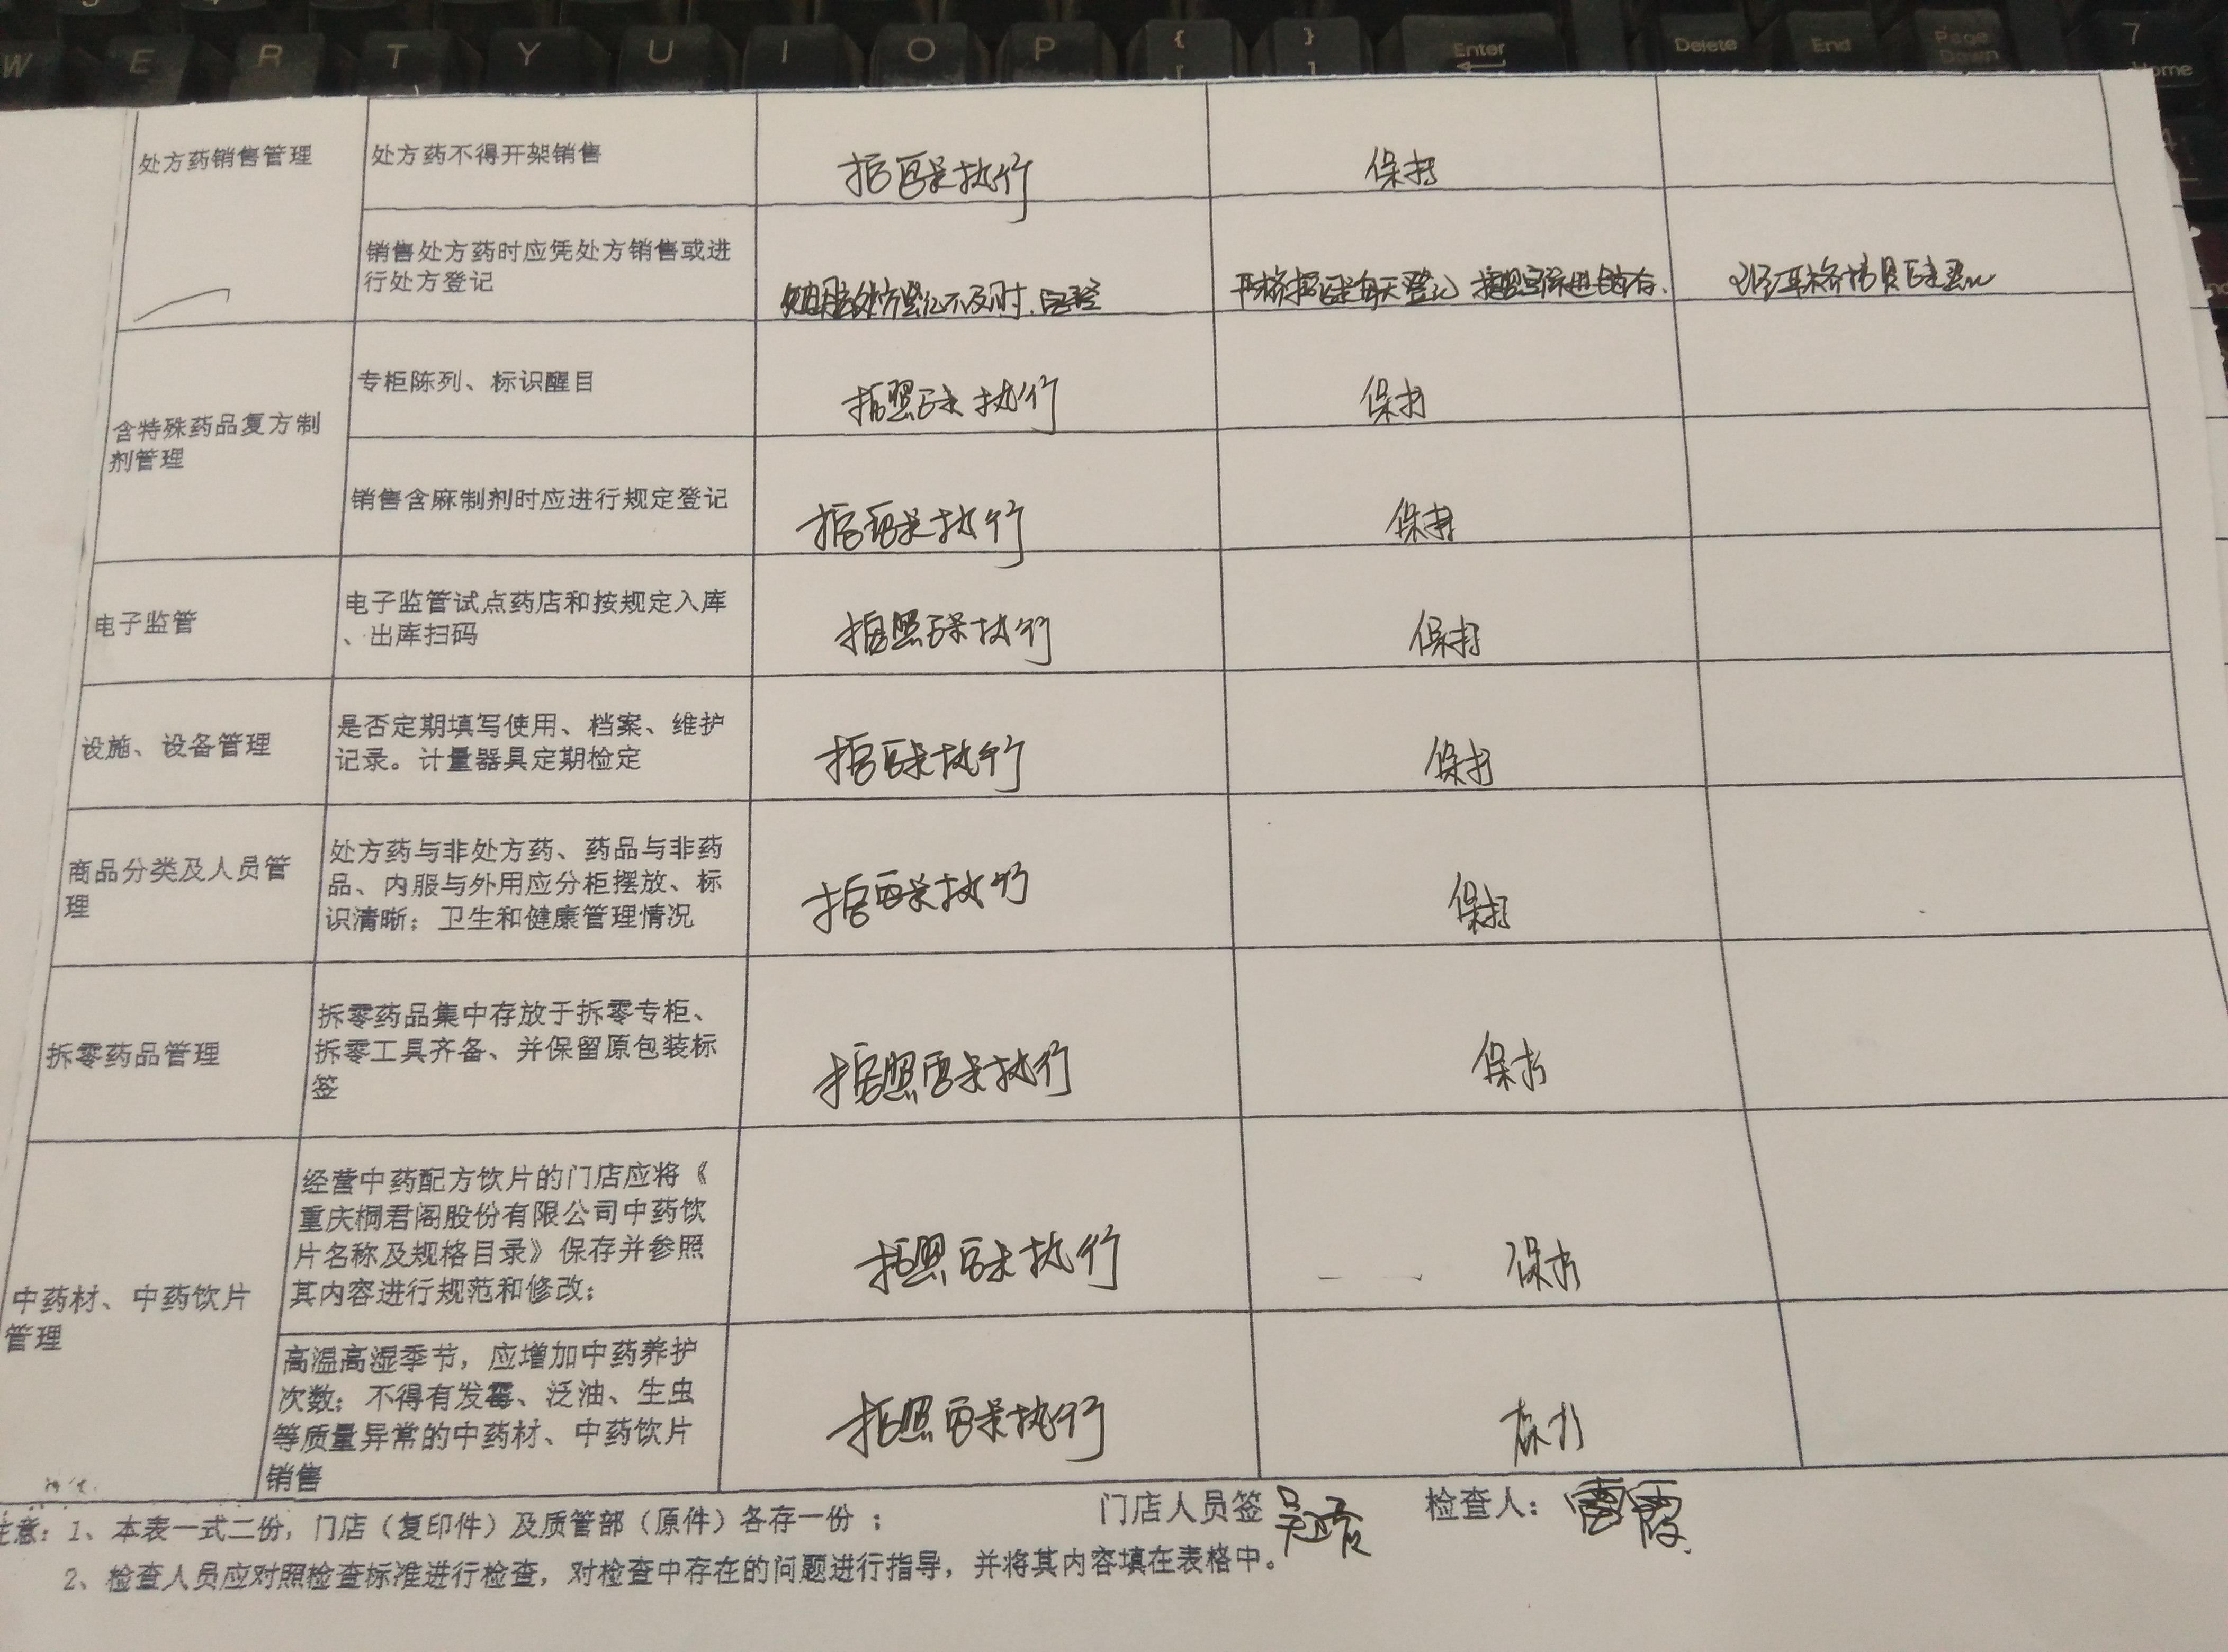 W E R T Y U I O P { [ } ] Enter Delete End Page Down 7 Home
处方药销售管理
处方药不得开架销售
执行
保持
销售处方药时应凭处方销售或进
行处方登记
不及时
严格
每天登记
严格
专柜陈列、标识醒目
按照要求执行
保持
含特殊药品复方制
剂管理
销售含麻制剂时应进行规定登记
按要求执行
保持
电子监管
电子监管试点药店和按规定入库
、出库扫码
按照要求执行
保持
设施、设备管理
是否定期填写使用、档案、维护
记录。计量器具定期检定
按要求执行
保持
商品分类及人员管
理
处方药与非处方药、药品与非药
品、内服与外用应分柜摆放、标
识清晰；卫生和健康管理情况
按要求执行
保持
拆零药品管理
拆零药品集中存放于拆零专柜、
拆零工具齐备、并保留原包装标
签
按照要求执行
保持
中药材、中药饮片
管理
经营中药配方饮片的门店应将《
重庆桐君阁股份有限公司中药饮
片名称及规格目录》保存并参照
其内容进行规范和修改；
按照要求执行
保持
高温高湿季节，应增加中药养护
次数；不得有发霉、泛油、生虫
等质量异常的中药材、中药饮片
销售
按照要求执行
保持
注意：1、本表一式二份，门店（复印件）及质管部（原件）各存一份；
门店人员签
检查人：雷霞
2、检查人员应对照检查标准进行检查，对检查中存在的问题进行指导，并将其内容填在表格中。